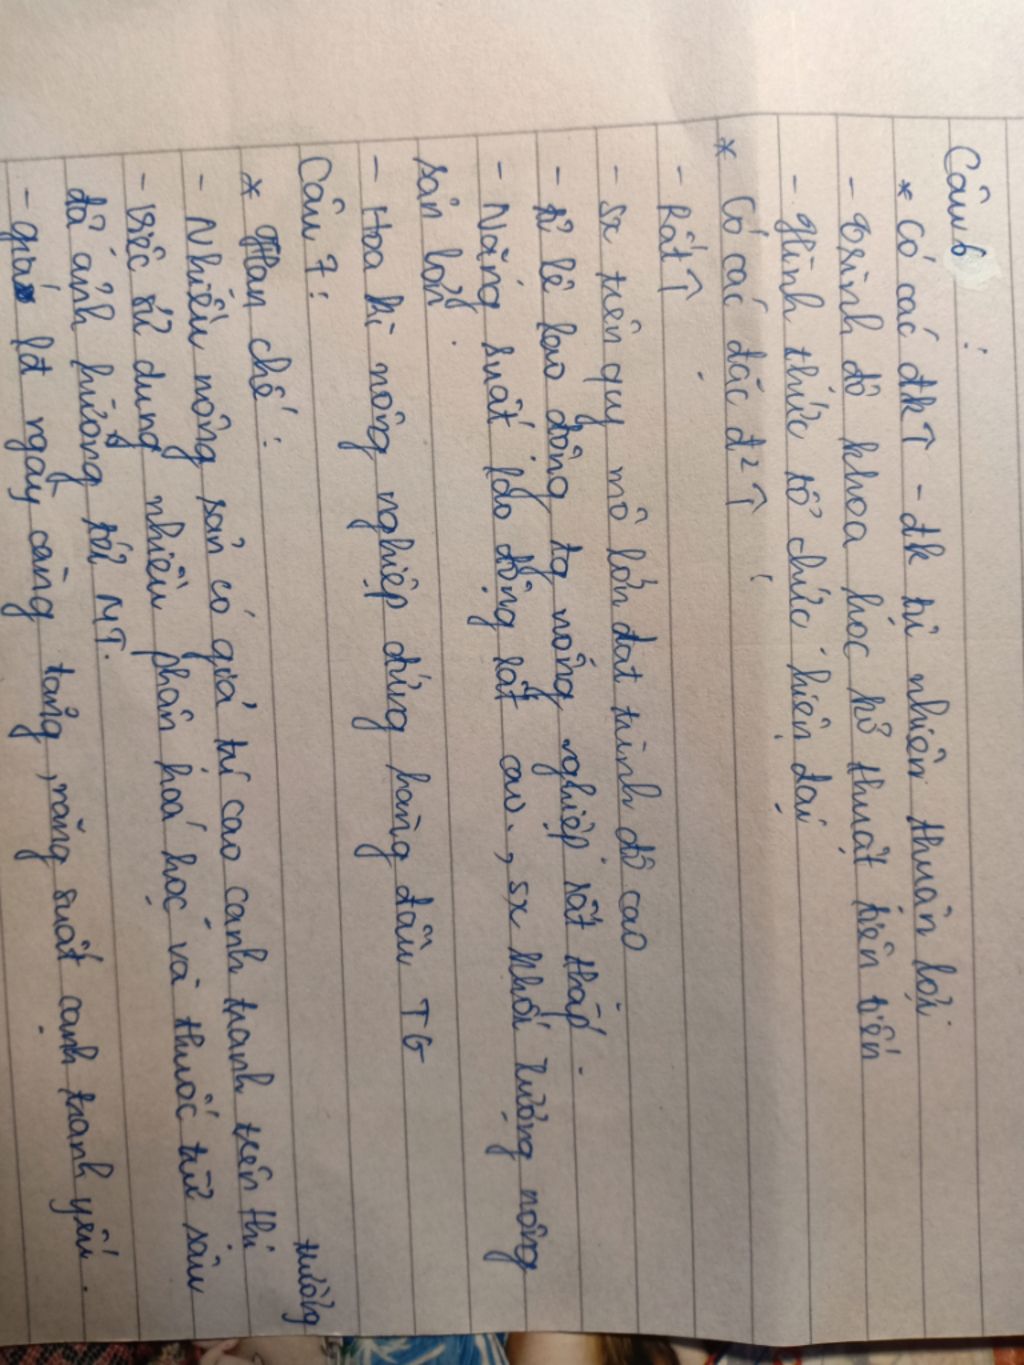 Câu 6:
* Có các đk↑ - đk tự nhiên thuận lợi.
- Trình độ khoa học kỹ thuật tiên tiến
- Hình thức tổ chức hiện đại
* Có các đặc đ² ↑:
- Rất ↑
- sx trên quy mô lớn đạt trình độ cao
- tỉ lệ lao động tg nông nghiệp rất thấp.
- Năng suất lao động rất cao, sx khối lượng nông
sản lớn.
- Hoa Kì nông nghiệp đứng hàng đầu TG
Câu 7:
* Hạn chế:
- Nhiều nông sản có giá trị cao cạnh tranh trên thị
trường
- việc sử dụng nhiều phân hoá học và thuốc trừ sâu
đã ảnh hưởng tới MT.
- giá lđ ngày càng tăng, năng suất cạnh tranh yếu.